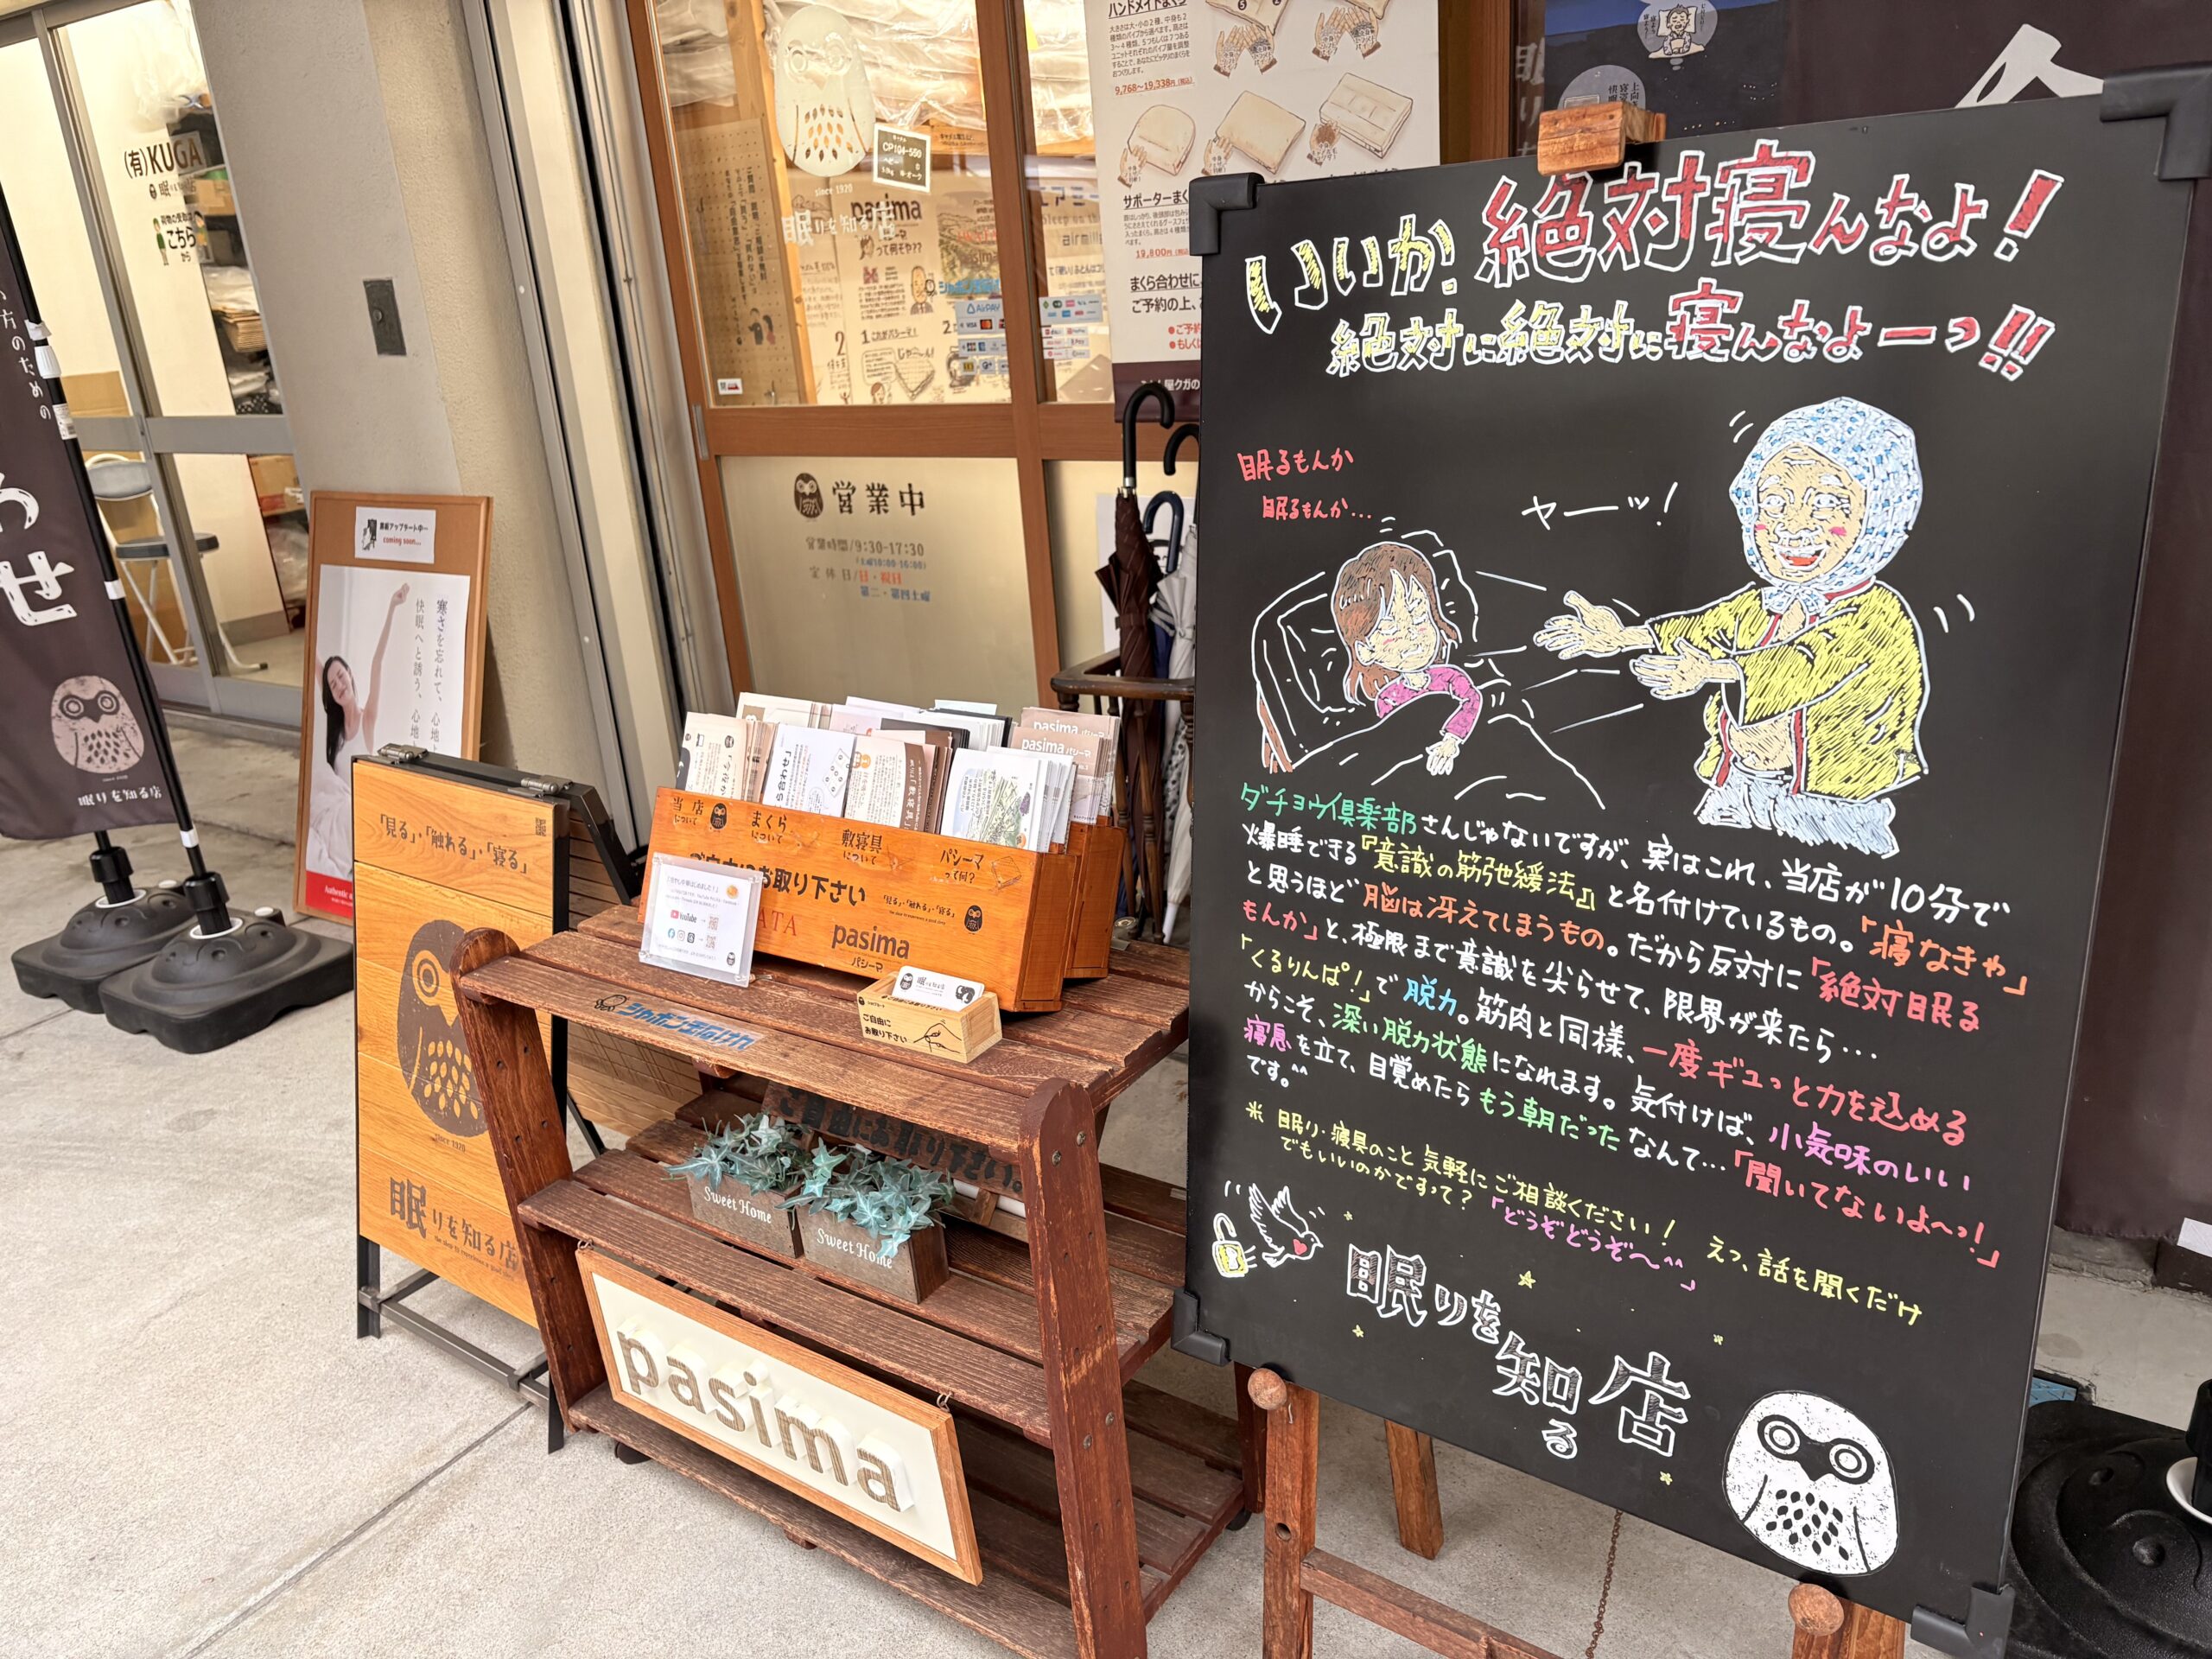 いいか、絶対寝んなよ！
絶対に絶対に寝んなよーっ!!
眠るもんか
眠るもんか…
ヤーッ！
ダチョウ倶楽部さんじゃないですが、実はこれ、当店が10分で
爆睡できる『意識の筋弛緩法』と名付けているもの。「寝なきゃ」
と思うほど脳は冴えてしまうもの。だから反対に「絶対眠る
もんか」と、極限まで意識を尖らせて、限界が来たら…
「くるりんぱ！」で脱力。筋肉と同様、一度ギュっと力を込める
からこそ、深い脱力状態になれます。気付けば、小気味のいい
寝息を立て、目覚めたらもう朝だったなんて…「聞いてないよ〜っ！」
です。^^
※ 眠り・寝具のこと気軽にご相談ください！ えっ、話を聞くだけ
でもいいのかですって？「どうぞどうぞ〜^^」
眠りを知る店
(有)KUGA
こちら
から
わせ
眠りを知る店
coming soon...
寒さを忘れて、心地
快眠へと誘う、心地
「見る」・「触れる」・「寝る」
since 1920
眠りを知る店
since 1920
眠りを知る店
CP104-550
pasima
って何ぞや??
1 これがパシーマ！
じゃ〜ん！
AirPAY
VISA
営業中
営業時間/9:30-17:30
(土曜10:00-16:00)
定休日/日・祝日
第二・第四土曜
ハンドメイドまくら
9,768〜19,338円(税込)
サポーターまく
19,800円(税込)
まくら合わせに
ご予約の上、
pasima パシーマ
pasima パシーマ
当店
について
まくら
について
敷寝具
について
パシーマ
って何？
お取り下さい
「見る」・「触れる」・「寝る」
pasima
パシーマ
YouTube
ご自由に
お取り下さい
シャボン玉石けん
ご自由にお取り下さい。
Sweet Home
Sweet Home
pasima